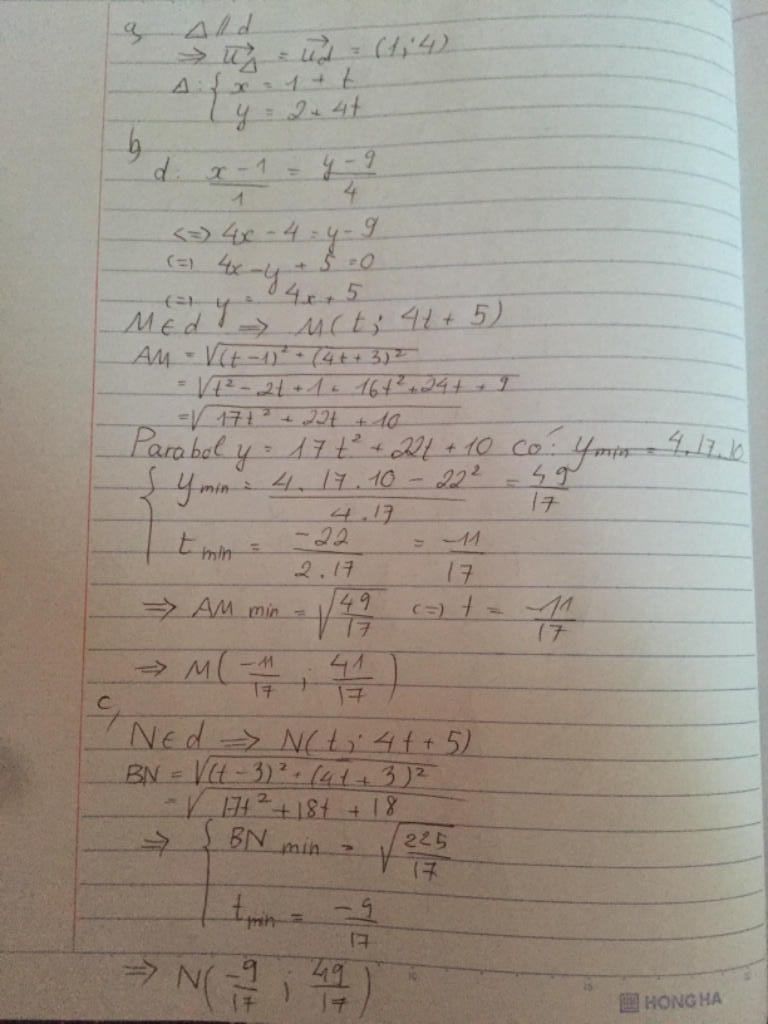 a, Δ // d
⇒ u⃗Δ = u⃗d = (1; 4)
Δ: { x = 1 + t
y = 2 + 4t
b,
d: (x - 1)/1 = (y - 9)/4
<=> 4x - 4 = y - 9
(=) 4x - y + 5 = 0
(=) y = 4x + 5
M ∈ d ⇒ M(t; 4t + 5)
AM = √((t-1)² + (4t+3)²)
= √(t² - 2t + 1 + 16t² + 24t + 9)
= √(17t² + 22t + 10)
Parabol y = 17t² + 22t + 10 có: ymin = 4.17.10
{ ymin = (4.17.10 - 22²)/4.17 = 49/17
tmin = -22/2.17 = -11/17
⇒ AM min = √(49/17) (=) t = -11/17
⇒ M(-11/17; 41/17)
c,
N ∈ d ⇒ N(t; 4t + 5)
BN = √((t-3)² + (4t+3)²)
= √(17t² + 18t + 18)
⇒ { BN min = √(225/17)
tmin = -9/17
⇒ N(-9/17; 49/17)
HONG HA